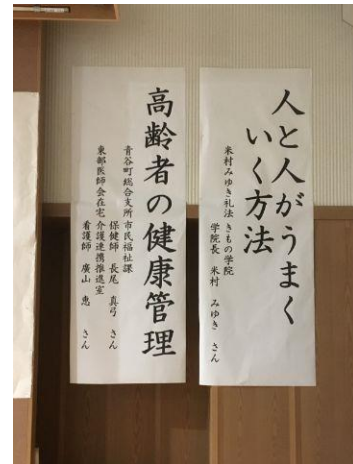 人と人がうまく
いく方法
米村みゆき礼法 きもの学院
学院長 米村 みゆき さん
高齢者の健康管理
青谷町総合支所市民福祉課
保健師 長尾 真弓 さん
東部医師会在宅介護連携推進室
看護師 廣山 恵 さん